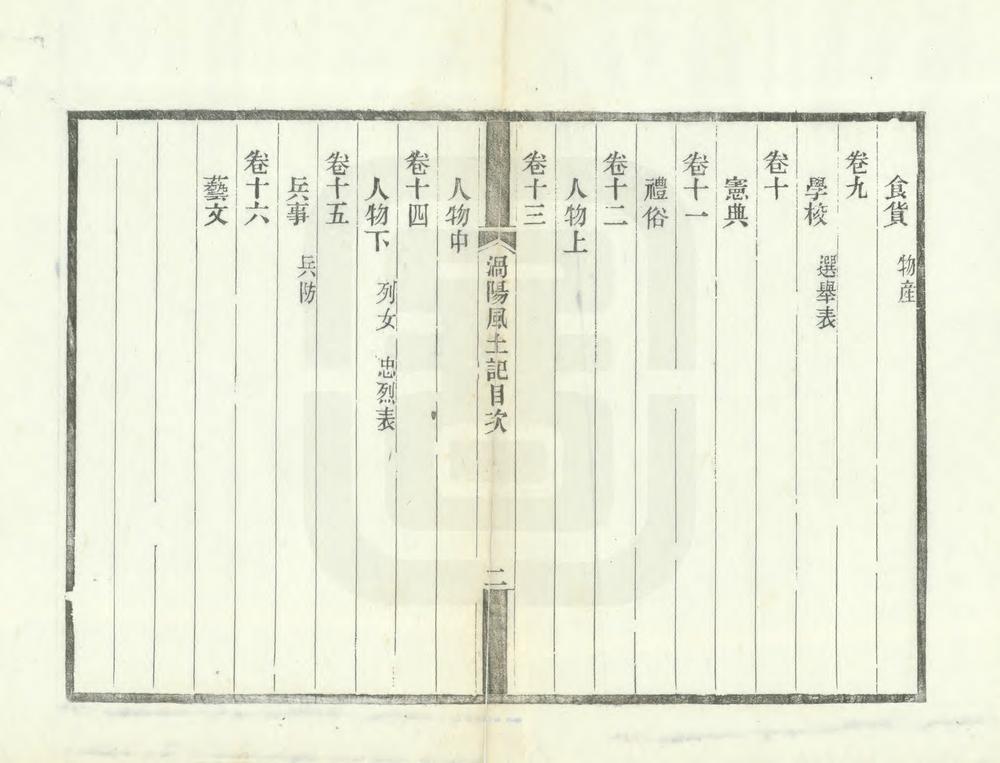 食貨 物産
卷九
學校 選舉表
卷十
憲典
卷十一
禮俗
卷十二
人物上
卷十三
渦陽風土記目次 二
人物中
卷十四
人物下 列女 忠烈表
卷十五
兵事 兵防
卷十六
藝文